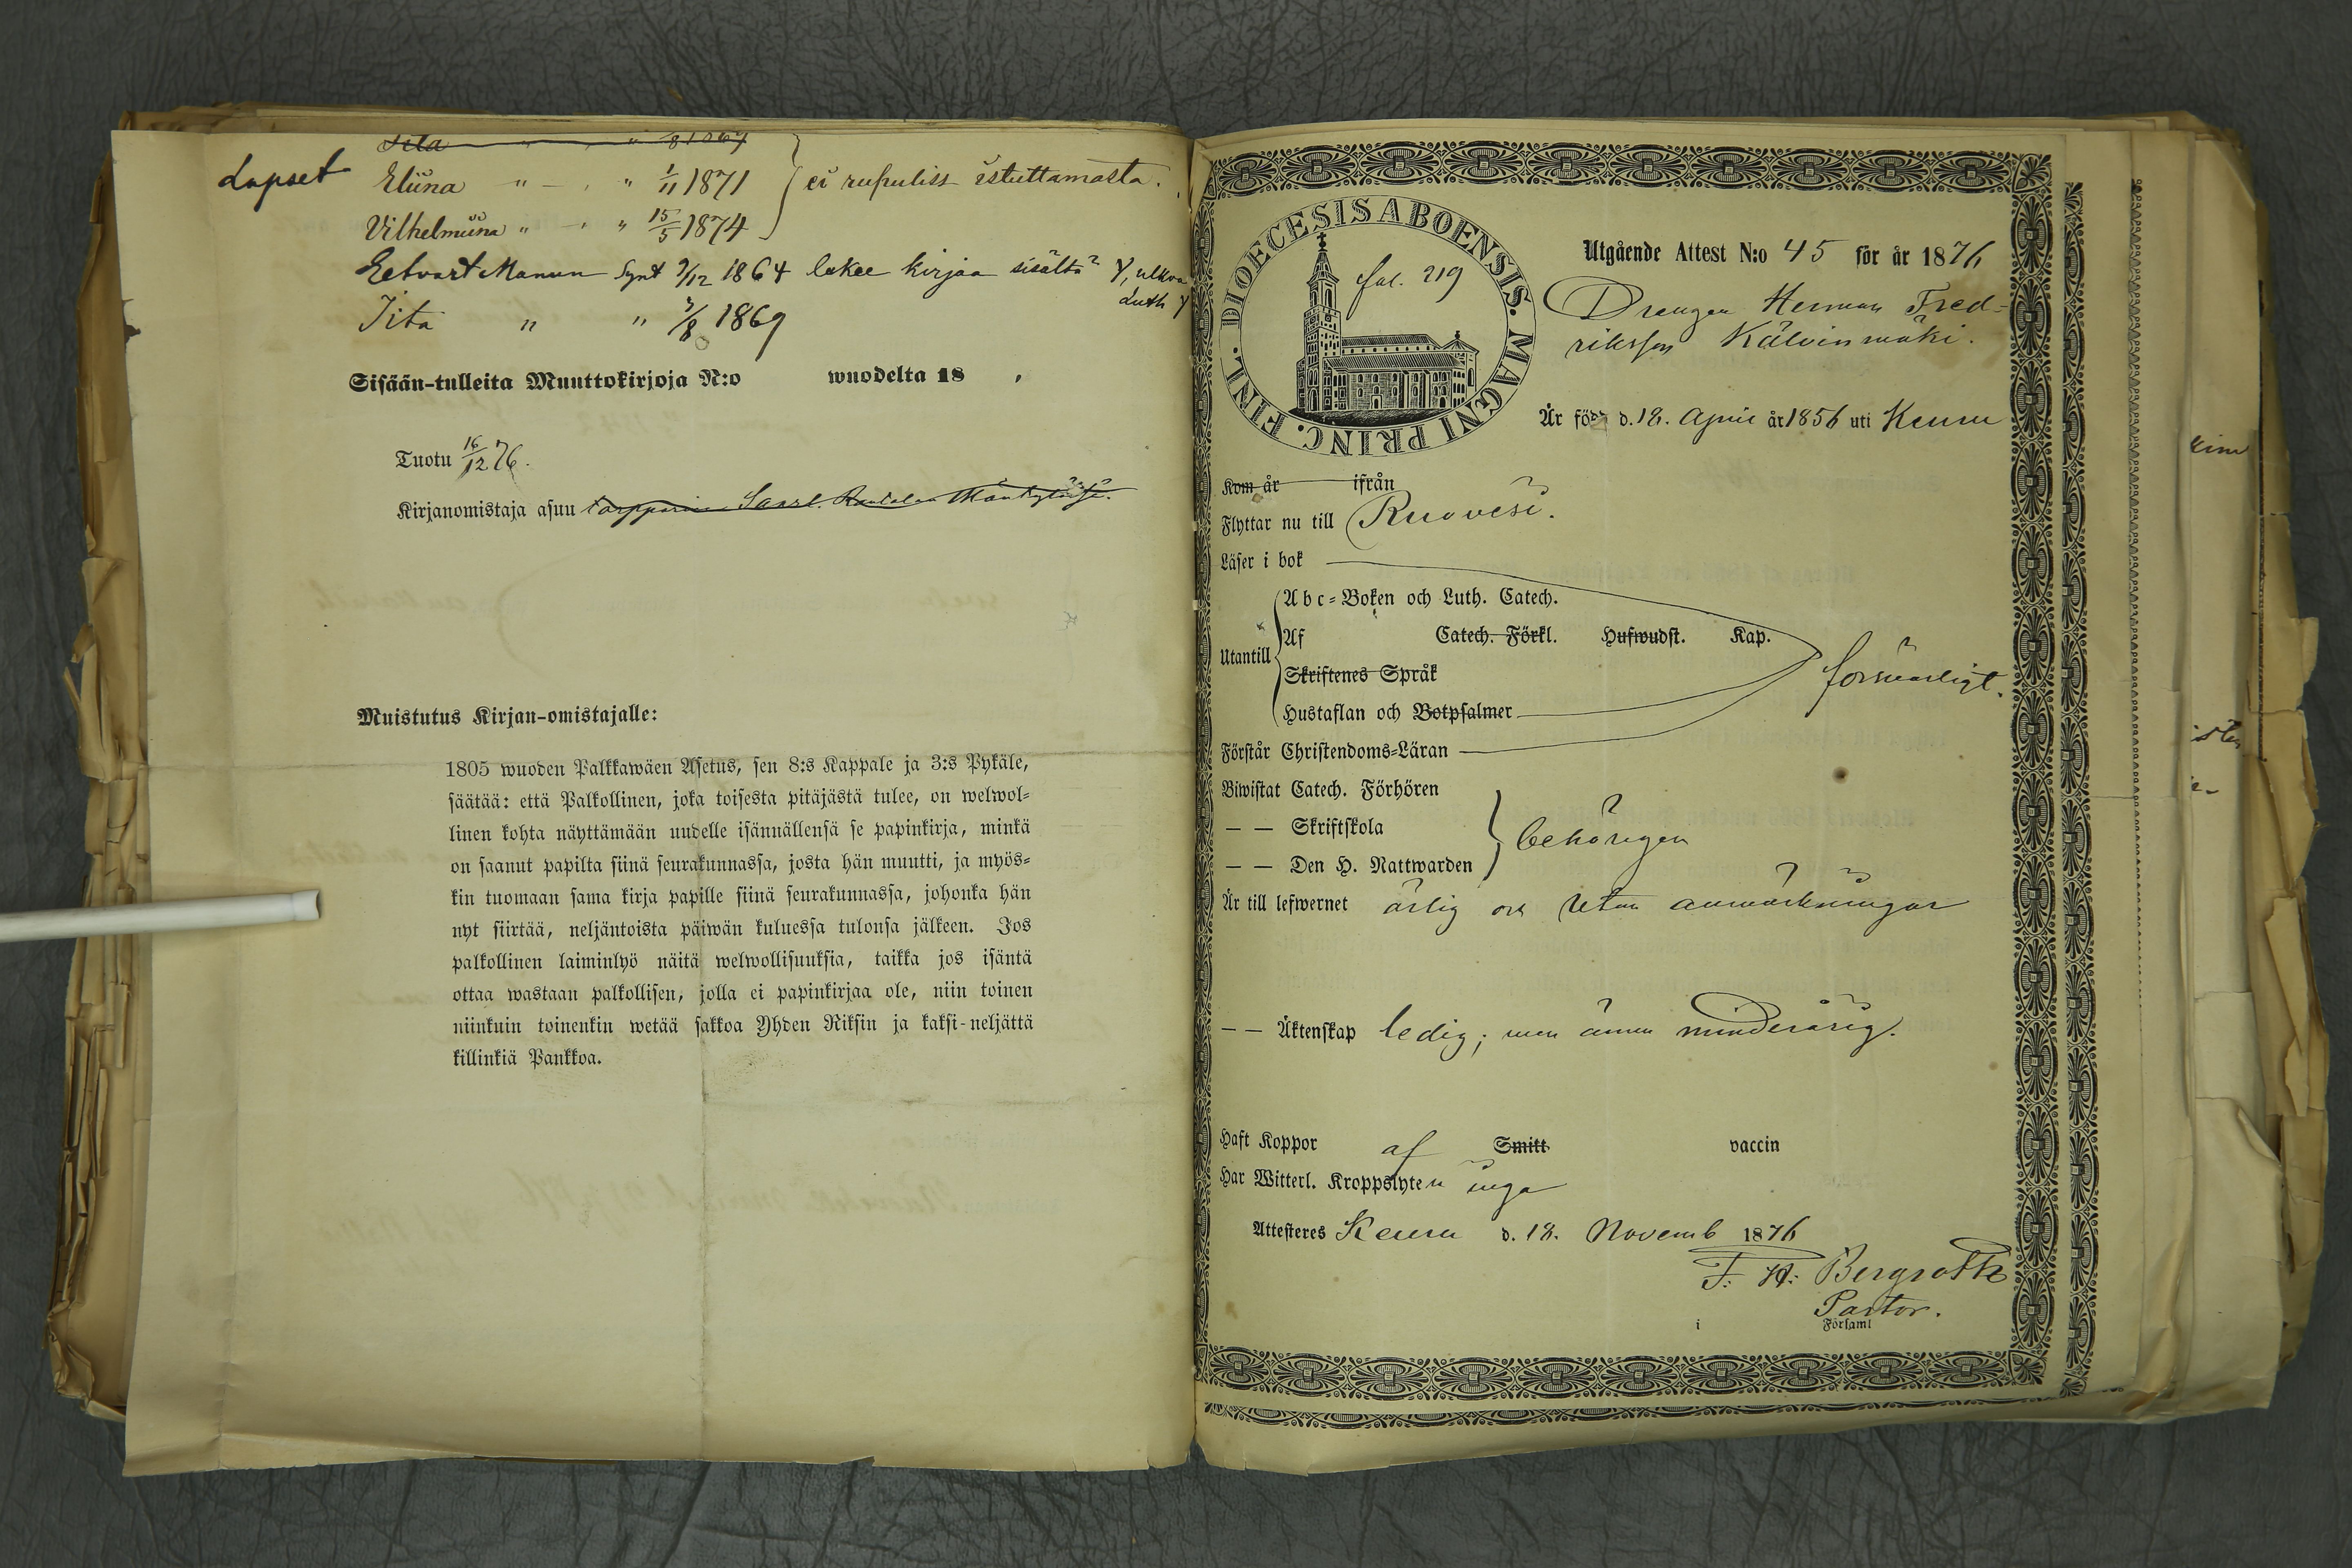 Iita " - " 8 1869
Lapset Eliina " - , " 1/11 1871 ei rupuliss istuttamasta.
Vilhelmiina " - , " 15/5 1874
Eetvart Manun Synt 9/12 1864 lukee kirjaa sisältä Y, ulkoa
Luth Y
Iita " " 7/8 1869
Sisään-tulleita Muuttokirjoja N:o wuodelta 18 .
Tuotu 16/12 76.
Kirjanomistaja asuu
Muistutus Kirjan-omistajalle:
1805 wuoden Palkkawäen Asetus, sen 8:s Kappale ja 3:s Pykäle,
säätää: että Palkollinen, joka toisesta pitäjästä tulee, on welwol-
linen kohta näyttämään uudelle isännällensä se papinkirja, minkä
on saanut papilta siinä seurakunnassa, josta hän muutti, ja myös-
kin tuomaan sama kirja papille siinä seurakunnassa, johonka hän
nyt siirtää, neljäntoista päiwän kuluessa tulonsa jälkeen. Jos
palkollinen laiminlyö näitä welwollisuuksia, taikka jos isäntä
ottaa wastaan palkollisen, jolla ei papinkirjaa ole, niin toinen
niinkuin toinenkin wetää sakkoa Yhden Riksin ja kaksi-neljättä
killinkiä Pankkoa.
DIOECESIS ABOENSIS. MAGNI PRINC. FINL.
fol. 219
Utgående Attest N:o 45 för år 1876
Drengen Herman Fred-
riksson Kälvinmäki.
Är född d. 18. April år 1856 uti Keuru
Kom år ifrån
Flyttar nu till Ruovesi.
Läser i bok
Utantill
Abc-Boken och Luth. Catech.
Af Catech. Förkl. Hufwudst. Kap.
Skriftenes Språk
Hustaflan och Botpsalmer
försvarligt.
Förstår Christendoms-Läran
Biwistat Catech. Förhören
— — Skriftskola
— — Den H. Nattwarden
behörigen
Är till lefwernet ärlig och utan anmärkningar
— — Äktenskap ledig; men ännu minderårig.
Haft Koppor af Smitt vaccin
Har Witterl. Kroppslyten inga
Attesteres Keuru d. 18. Novemb 1876
F: H: Bergroth
Pastor.
i Församl